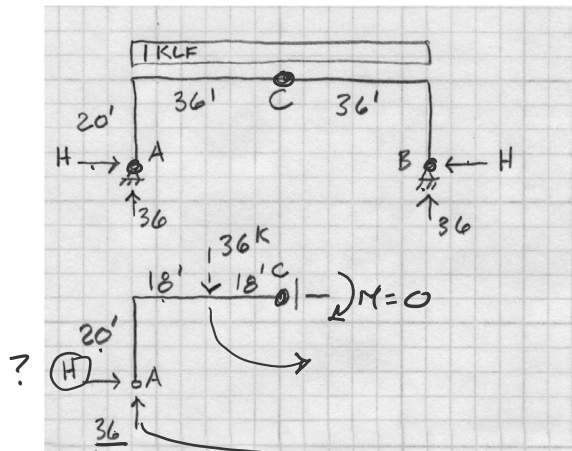 1 KLF
36' C 36'
20'
H A B H
36 36
36K
18' 18' C
M=0
20'
? H A
36